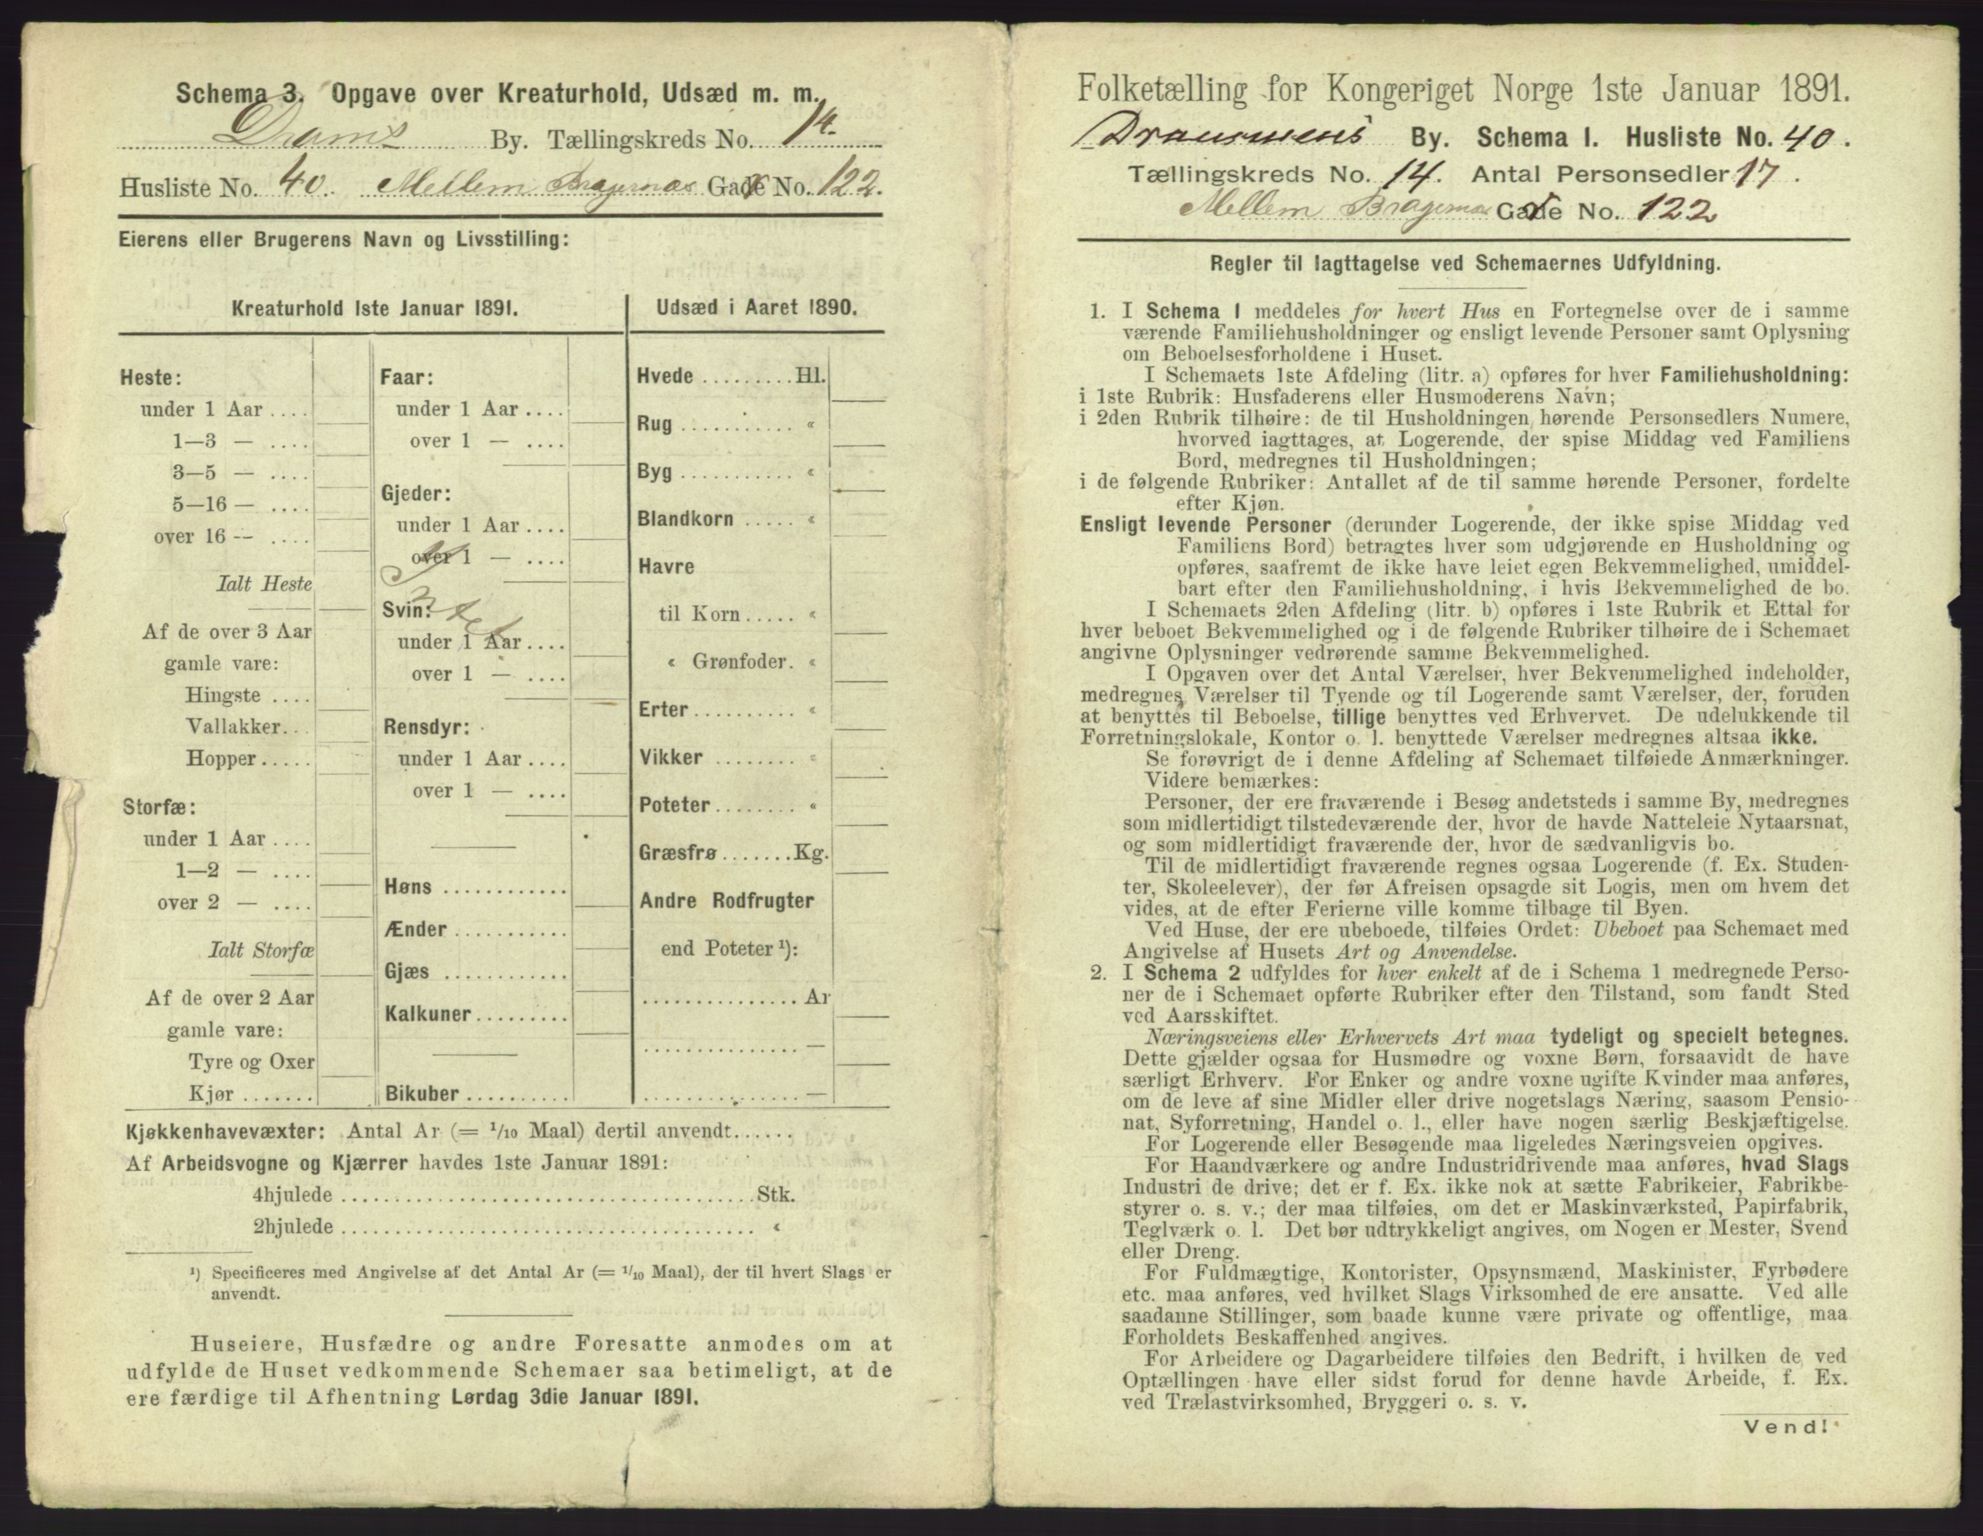 Schema 3. Opgave over Kreaturhold, Udsæd m. m.
Drams By. Tællingskreds No. 14.
Husliste No. 40. Mellem Bragernæs Gade No. 122.
Eierens eller Brugerens Navn og Livsstilling:
Kreaturhold 1ste Januar 1891.
Heste:
under 1 Aar ....
1—3 — ....
3—5 — ....
5—16 — ....
over 16 — ....
Ialt Heste
Af de over 3 Aar
gamle vare:
Hingste ....
Vallakker...
Hopper.....
Storfæ:
under 1 Aar ....
1—2 — ....
over 2 — ....
Ialt Storfæ
Af de over 2 Aar
gamle vare:
Tyre og Oxer
Kjør .......
Faar:
under 1 Aar ....
over 1 — ....
Gjeder:
under 1 Aar ....
over 1 — ....
Svin:
under 1 Aar ....
over 1 — ....
Rensdyr:
under 1 Aar ....
over 1 — ....
Høns ............
Ænder ...........
Gjæs ............
Kalkuner.........
Bikuber ..........
Udsæd i Aaret 1890.
Hvede .........Hl.
Rug ........... «
Byg ........... «
Blandkorn ..... «
Havre
til Korn..... «
« Grønfoder. «
Erter.......... «
Vikker ........ «
Poteter........ «
Græsfrø.......Kg.
Andre Rodfrugter
end Poteter ¹):
...............Ar
............... —
............... —
Kjøkkenhavevæxter: Antal Ar (= 1/10 Maal) dertil anvendt......
Af Arbeidsvogne og Kjærrer havdes 1ste Januar 1891:
4hjulede ........................................Stk.
2hjulede ........................................ «
¹) Specificeres med Angivelse af det Antal Ar (= 1/10 Maal), der til hvert Slags er
anvendt.
Huseiere, Husfædre og andre Foresatte anmodes om at
udfylde de Huset vedkommende Schemaer saa betimeligt, at de
ere færdige til Afhentning Lørdag 3die Januar 1891.
Folketælling for Kongeriget Norge 1ste Januar 1891.
Drammens By. Schema I. Husliste No. 40.
Tællingskreds No. 14. Antal Personsedler 17.
Mellem Bragernæs Gade No. 122
Regler til Iagttagelse ved Schemaernes Udfyldning.
1. I Schema 1 meddeles for hvert Hus en Fortegnelse over de i samme
værende Familiehusholdninger og ensligt levende Personer samt Oplysning
om Beboelsesforholdene i Huset.
I Schemaets 1ste Afdeling (litr. a) opføres for hver Familiehusholdning:
i 1ste Rubrik: Husfaderens eller Husmoderens Navn;
i 2den Rubrik tilhøire: de til Husholdningen hørende Personsedlers Numere,
hvorved iagttages, at Logerende, der spise Middag ved Familiens
Bord, medregnes til Husholdningen;
i de følgende Rubriker: Antallet af de til samme hørende Personer, fordelte
efter Kjøn.
Ensligt levende Personer (derunder Logerende, der ikke spise Middag ved
Familiens Bord) betragtes hver som udgjørende en Husholdning og
opføres, saafremt de ikke have leiet egen Bekvemmelighed, umiddel-
bart efter den Familiehusholdning, i hvis Bekvemmelighed de bo.
I Schemaets 2den Afdeling (litr. b) opføres i 1ste Rubrik et Ettal for
hver beboet Bekvemmelighed og i de følgende Rubriker tilhøire de i Schemaet
angivne Oplysninger vedrørende samme Bekvemmelighed.
I Opgaven over det Antal Værelser, hver Bekvemmelighed indeholder,
medregnes Værelser til Tyende og til Logerende samt Værelser, der, foruden
at benyttes til Beboelse, tillige benyttes ved Erhvervet. De udelukkende til
Forretningslokale, Kontor o. l. benyttede Værelser medregnes altsaa ikke.
Se forøvrigt de i denne Afdeling af Schemaet tilføiede Anmærkninger.
Videre bemærkes:
Personer, der ere fraværende i Besøg andetsteds i samme By, medregnes
som midlertidigt tilstedeværende der, hvor de havde Natteleie Nytaarsnat,
og som midlertidigt fraværende der, hvor de sædvanligvis bo.
Til de midlertidigt fraværende regnes ogsaa Logerende (f. Ex. Studen-
ter, Skoleelever), der før Afreisen opsagde sit Logis, men om hvem det
vides, at de efter Ferierne ville komme tilbage til Byen.
Ved Huse, der ere ubeboede, tilføies Ordet: Ubeboet paa Schemaet med
Angivelse af Husets Art og Anvendelse.
2. I Schema 2 udfyldes for hver enkelt af de i Schema 1 medregnede Perso-
ner de i Schemaet opførte Rubriker efter den Tilstand, som fandt Sted
ved Aarsskiftet.
Næringsveiens eller Erhvervets Art maa tydeligt og specielt betegnes.
Dette gjælder ogsaa for Husmødre og voxne Børn, forsaavidt de have
særligt Erhverv. For Enker og andre voxne ugifte Kvinder maa anføres,
om de leve af sine Midler eller drive nogetslags Næring, saasom Pensio-
nat, Syforretning, Handel o. l., eller have nogen særlig Beskjæftigelse.
For Logerende eller Besøgende maa ligeledes Næringsveien opgives.
For Haandværkere og andre Industridrivende maa anføres, hvad Slags
Industri de drive; det er f. Ex. ikke nok at sætte Fabrikeier, Fabrikbe-
styrer o. s. v.; der maa tilføies, om det er Maskinværksted, Papirfabrik,
Teglværk o. l. Det bør udtrykkeligt angives, om Nogen er Mester, Svend
eller Dreng.
For Fuldmægtige, Kontorister, Opsynsmænd, Maskinister, Fyrbødere
etc. maa anføres, ved hvilket Slags Virksomhed de ere ansatte. Ved alle
saadanne Stillinger, som baade kunne være private og offentlige, maa
Forholdets Beskaffenhed angives.
For Arbeidere og Dagarbeidere tilføies den Bedrift, i hvilken de ved
Optællingen have eller sidst forud for denne havde Arbeide, f. Ex.
ved Trælastvirksomhed, Bryggeri o. s. v.
Vend!